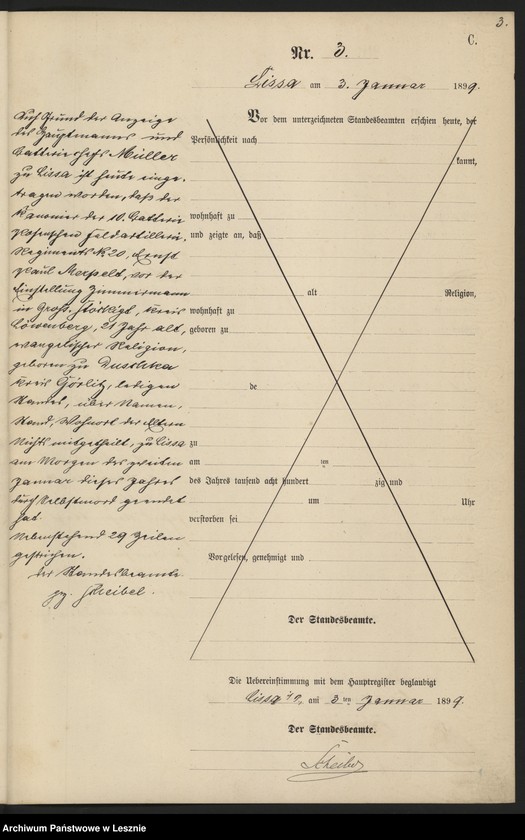 3.
C.
Nr. 3.
Lissa am 3. Januar 1899.
Auf Grund der Anzeige
des Hauptmanns und
Batteriechefs Müller
zu Lissa ist heute einge-
tragen worden, daß der
Kanonier der 10. Batterie
Posenschen Feldartillerie-
Regiments No 20, Ernst
Paul Menzel, vor der
Einstellung Zimmermann
in Groß, Kreis
Löwenberg, 21 Jahr alt,
evangelischer Religion,
geboren zu
Kreis Görlitz, ledigen
Standes, über Namen,
Stand, Wohnort der Eltern
Nichts mitgetheilt, zu Lissa
am Morgen des zweiten
Januar dieses Jahres
durch Selbstmord geendet
hat.
Nebenstehend 29 Zeilen
gestrichen.
Der Standesbeamte.
gez. Scheibel.
Vor dem unterzeichneten Standesbeamten erschien heute, der
Persönlichkeit nach
kannt,
wohnhaft zu
und zeigte an, daß
alt Religion,
wohnhaft zu
geboren zu
de
zu
am ten
des Jahres tausend acht hundert zig und
um Uhr
verstorben sei
Vorgelesen, genehmigt und
Der Standesbeamte.
Die Uebereinstimmung mit dem Hauptregister beglaubigt
Lissa am 3ten Januar 1899.
Der Standesbeamte.
Scheibel
Archiwum Państwowe w Lesznie